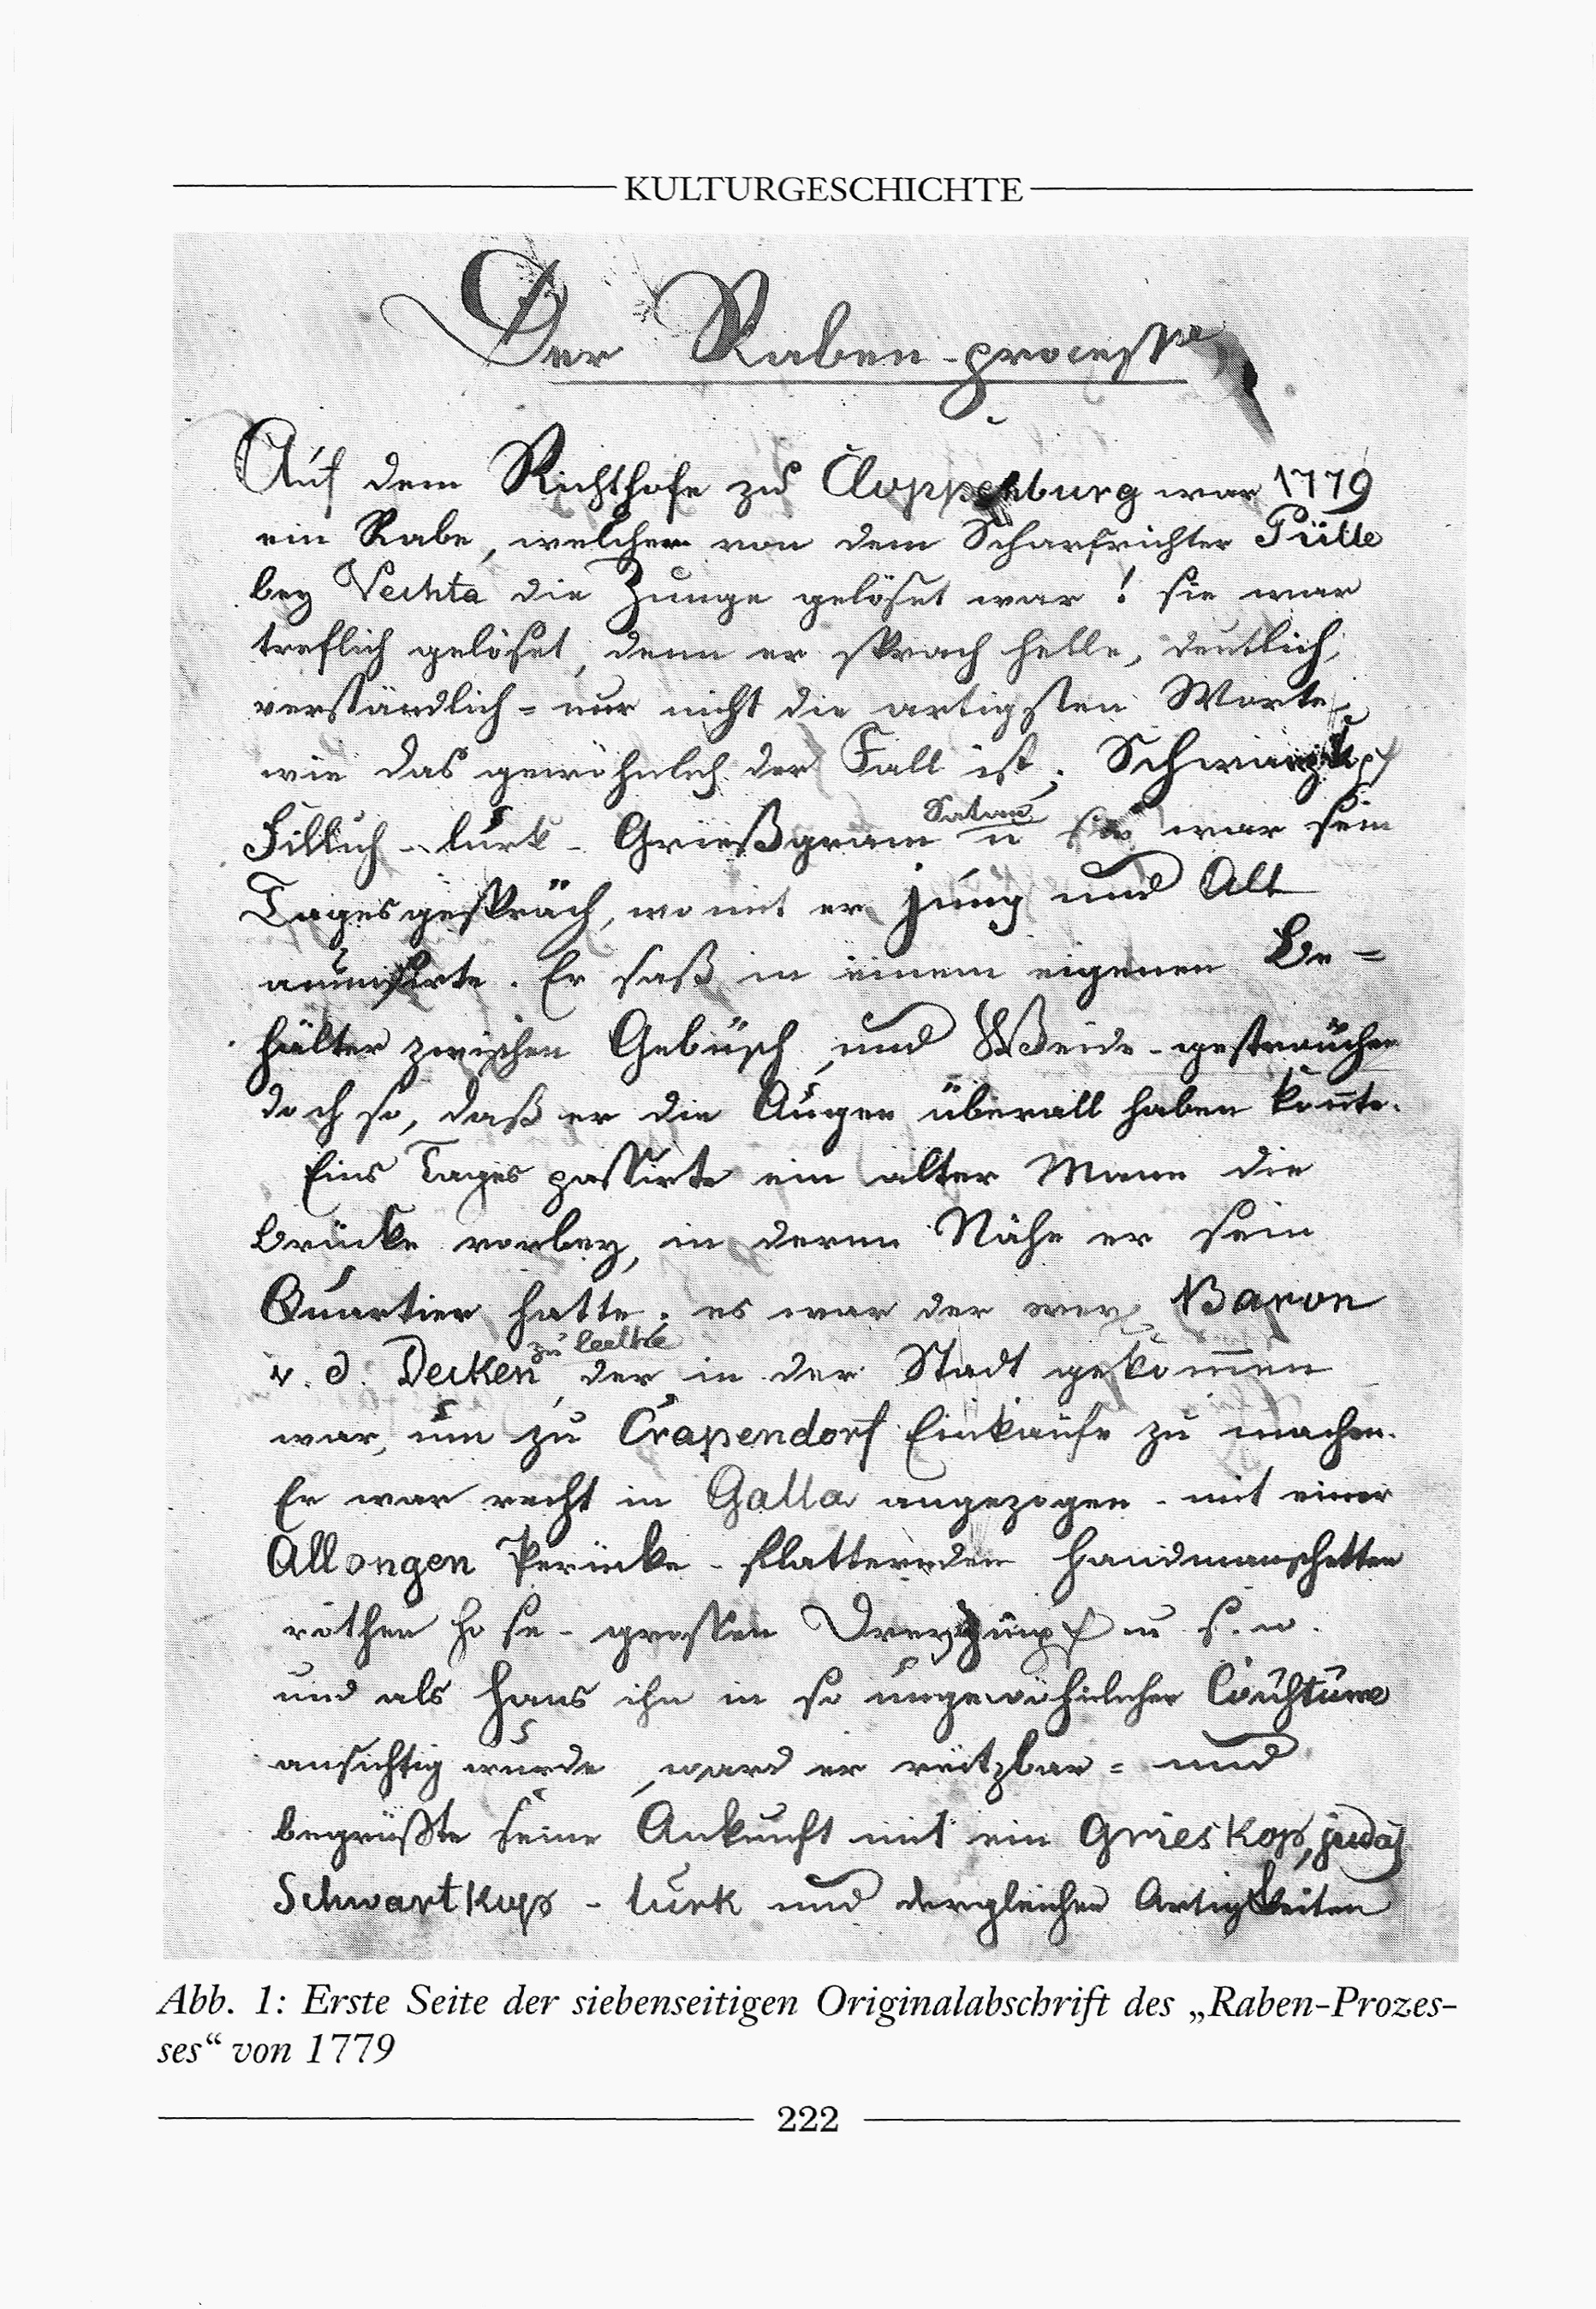 KULTURGESCHICHTE
Der Raben-processe
Auf dem Richthofe zu Cloppenburg war 1779
ein Rabe, welcher von dem Scharfrichter Pülle
bey Vechta die Zunge gelöset war! sie war
treflich gelöset, denn er sprach helle, deutlich,
verständlich = nur nicht die artigsten Worte,
wie das gewöhnlich der Fall ist; Schwarzkopf
Filluch - lurk - Grießgram Satan u war sein
Tagesgespräch, womit er jung und Alt
amusirte. Er saß in einem eigenen Be=
hälter zwischen Gebüsch, und Weide-gesträuchen
doch so, daß er die Augen überall haben konnte.
Eins Tages passirte ein alter Mann die
Brücke vorbey, in deren Nähe er sein
Quartier hatte; es war der Baron
v. d. Decken zu leethe, der in der Stadt gekommen
war, um zu Crapendorf Einkaufe zu machen.
Er war recht in Galla angezogen - mit einer
Allongen Perücke - flatternden Handmanschetten
rothen Hose - grossen u. s. w.
und als Hans ihn in so ungewöhnlicher
ansichtig wurde, ward er reitzbar = und
begrüßte seine Ankunft mit ein Grieskop, judas
Schwartkopp - lurk und dergleichen Artigkeiten
Abb. 1: Erste Seite der siebenseitigen Originalabschrift des „Raben-Prozes-
ses“ von 1779
222